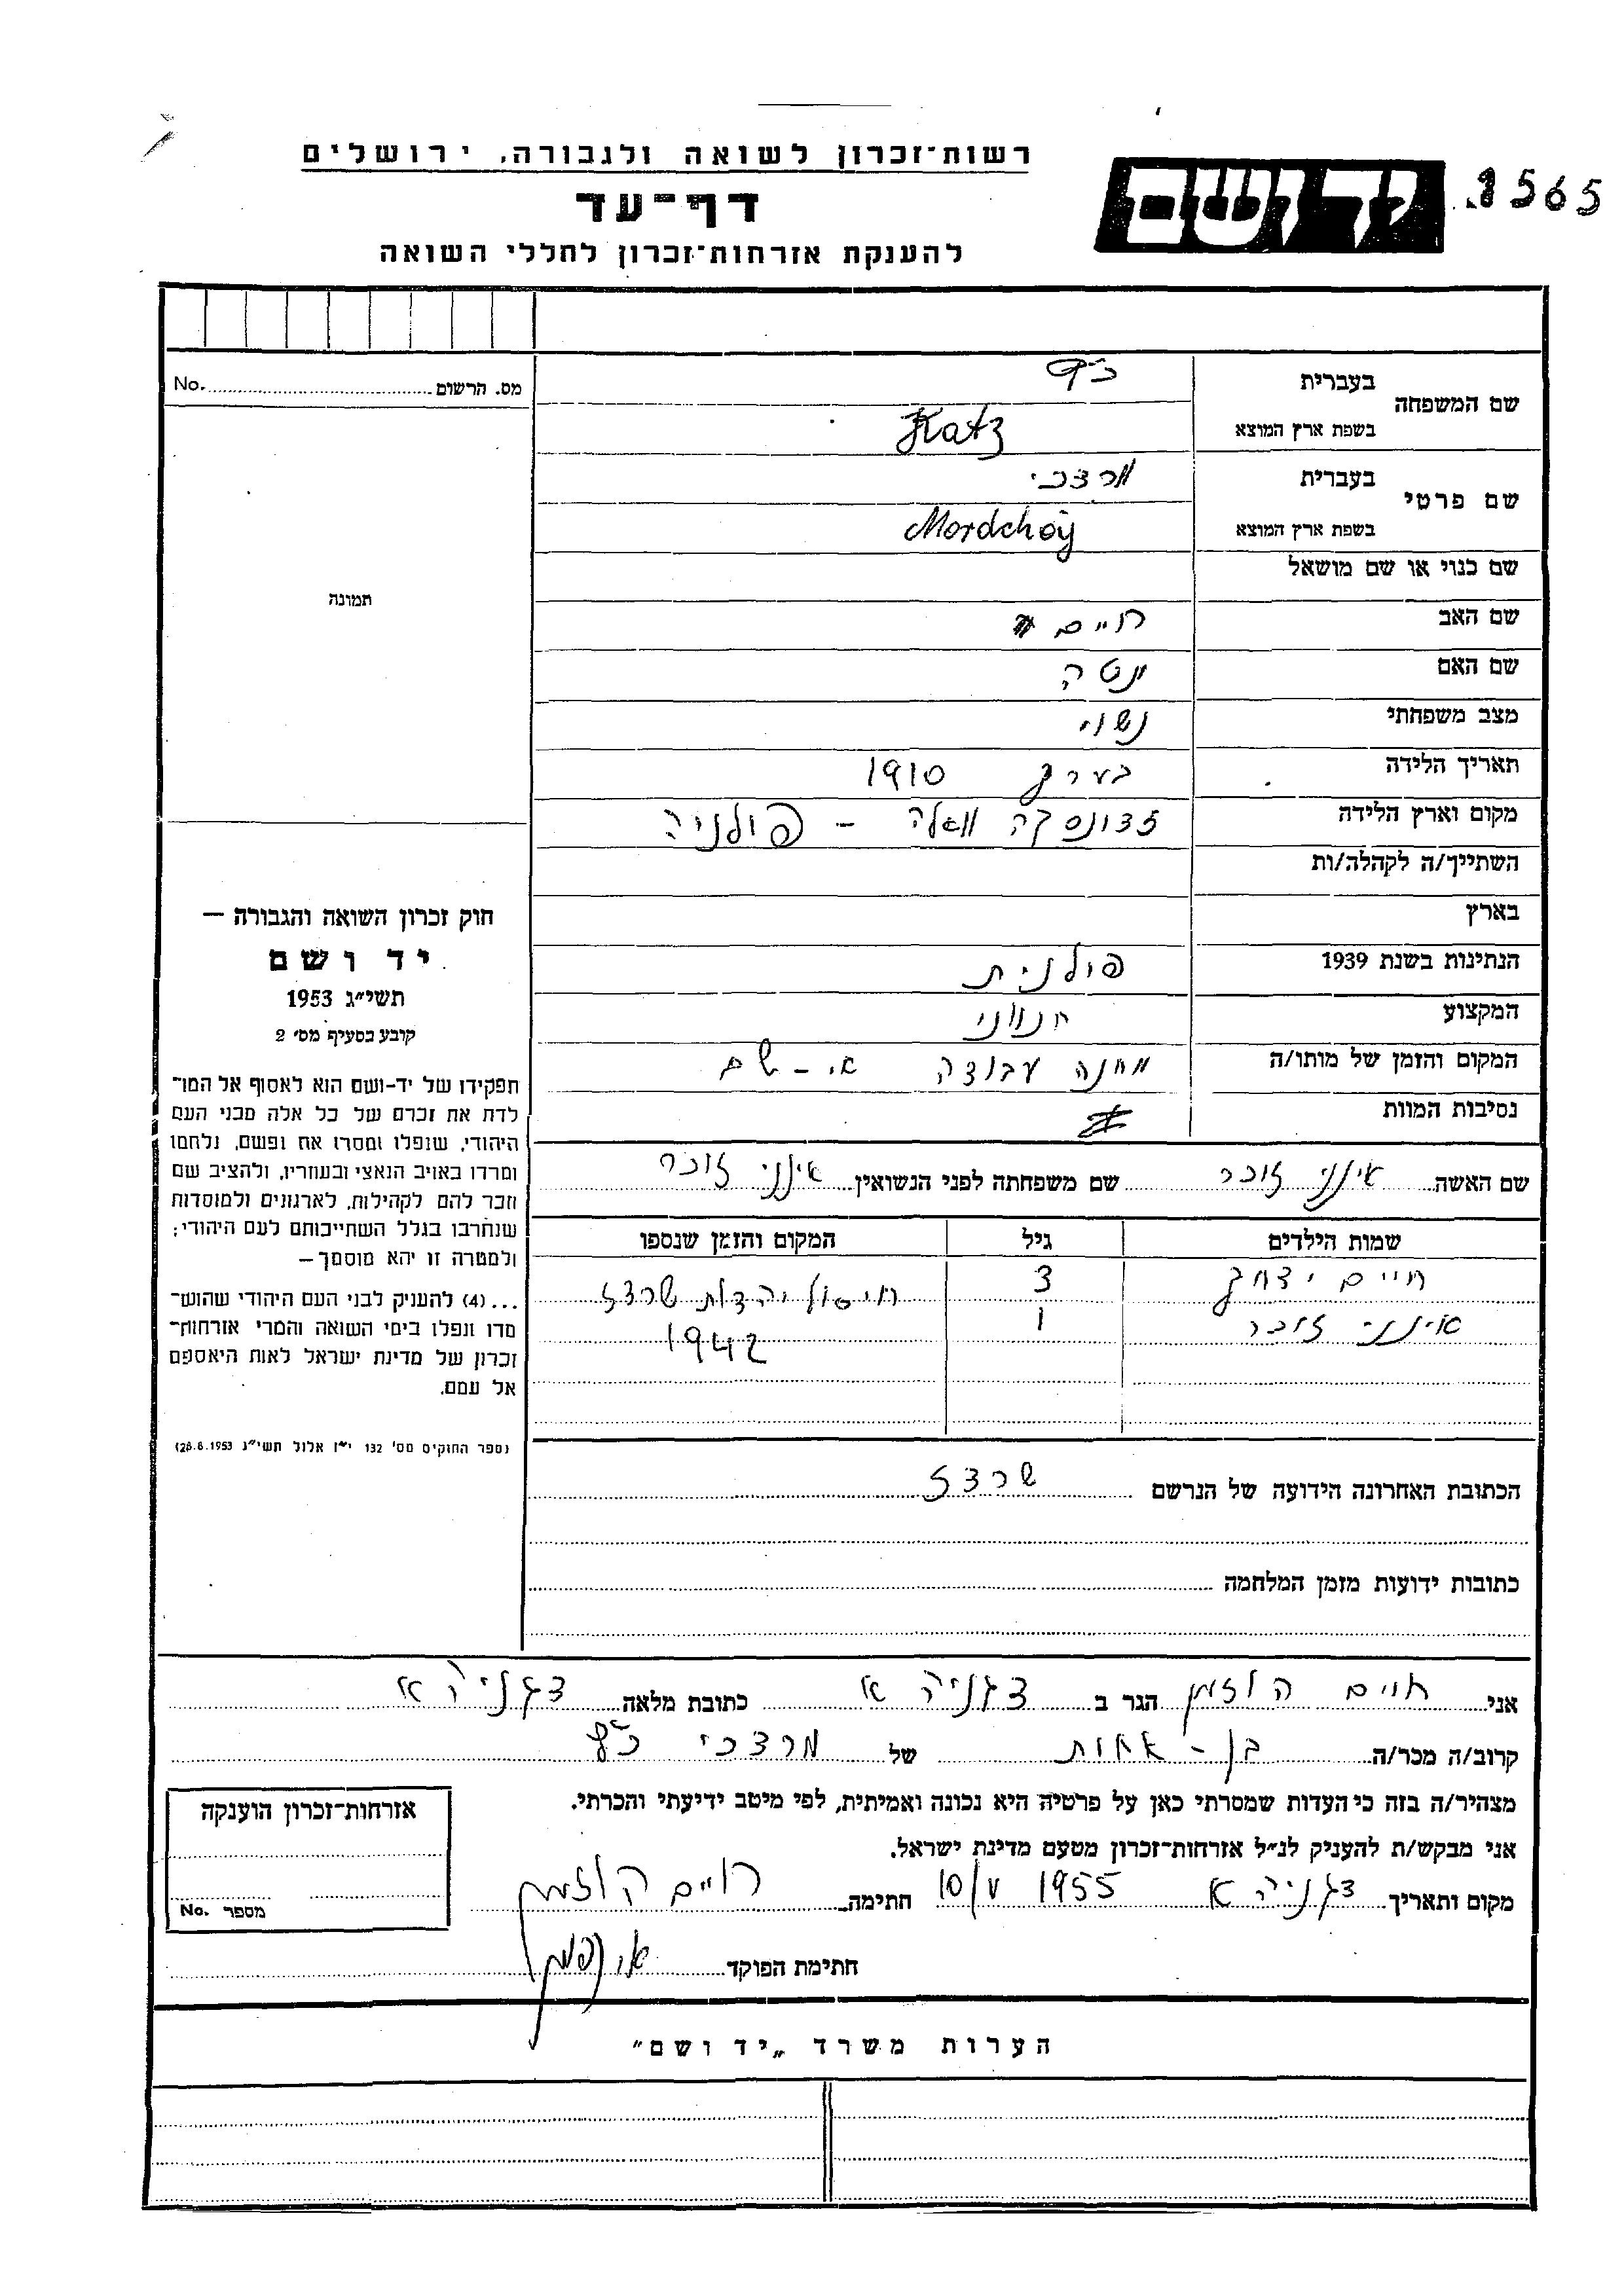 רשות־זכרון לשואה ולגבורה, ירושלים
יד ושם
8565
דף־עד
להענקת אזרחות־זכרון לחללי השואה
שם המשפחה
בעברית כ"ץ
בשפת ארץ המוצא Katz
שם פרטי
בעברית מרדכי
בשפת ארץ המוצא Mordchoj
שם כנוי או שם מושאל
שם האב חיים
שם האם יטה
מצב משפחתי נשוי
תאריך הלידה בערך 1910
מקום וארץ הלידה זדונסקה וואלה – פולניה
השתייך/ה לקהלה/ות
בארץ
הנתינות בשנת 1939 פולנית
המקצוע חנווני
המקום והזמן של מותו/ה מחנה עבודה אי-שם
נסיבות המוות
שם האשה אינני זוכר שם משפחתה לפני הנשואין אינני זוכר
שמות הילדים גיל המקום והזמן שנספו
חיים יצחק 3 חיסול יהדות שרדז
אינני זוכר 1 1942
הכתובת האחרונה הידועה של הנרשם שרדז
כתובות ידועות מזמן המלחמה
מס. הרשום No.
תמונה
חוק זכרון השואה והגבורה –
יד ושם
תשי"ג 1953
קובע בסעיף מס' 2
תפקידו של יד-ושם הוא לאסוף אל המו־
לדת את זכרם של כל אלה מבני העם
היהודי, שנפלו ומסרו את נפשם, נלחמו
ומרדו באויב הנאצי ובעוזריו, ולהציב שם
וזכר להם לקהילות, לארגונים ולמוסדות
שנחרבו בגלל השתייכותם לעם היהודי;
ולמטרה זו יהא מוסמך –
...(4) להענקת לבני העם היהודי שהוש־
מדו ונפלו בימי השואה והמרי אזרחות־
זכרון של מדינת ישראל לאות היאספם
אל עמם.
(ספר החוקים מס' 132 י"ז אלול תשי"ג 28.8.1953)
אני חיים הוזמן הגר ב דגניה א כתובת מלאה דגניה א
קרוב/ה מכר/ה בן-אחות של מרדכי כ"ץ
מצהיר/ה בזה כי העדות שמסרתי כאן על פרטיה היא נכונה ואמיתית, לפי מיטב ידיעתי והכרתי.
אני מבקש/ת להעניק לנ"ל אזרחות־זכרון מטעם מדינת ישראל.
מקום ותאריך דגניה א 1955 10/V חתימה חיים הוזמן
חתימת הפוקד
אזרחות־זכרון הוענקה
מספר No.
הערות משרד „יד ושם"